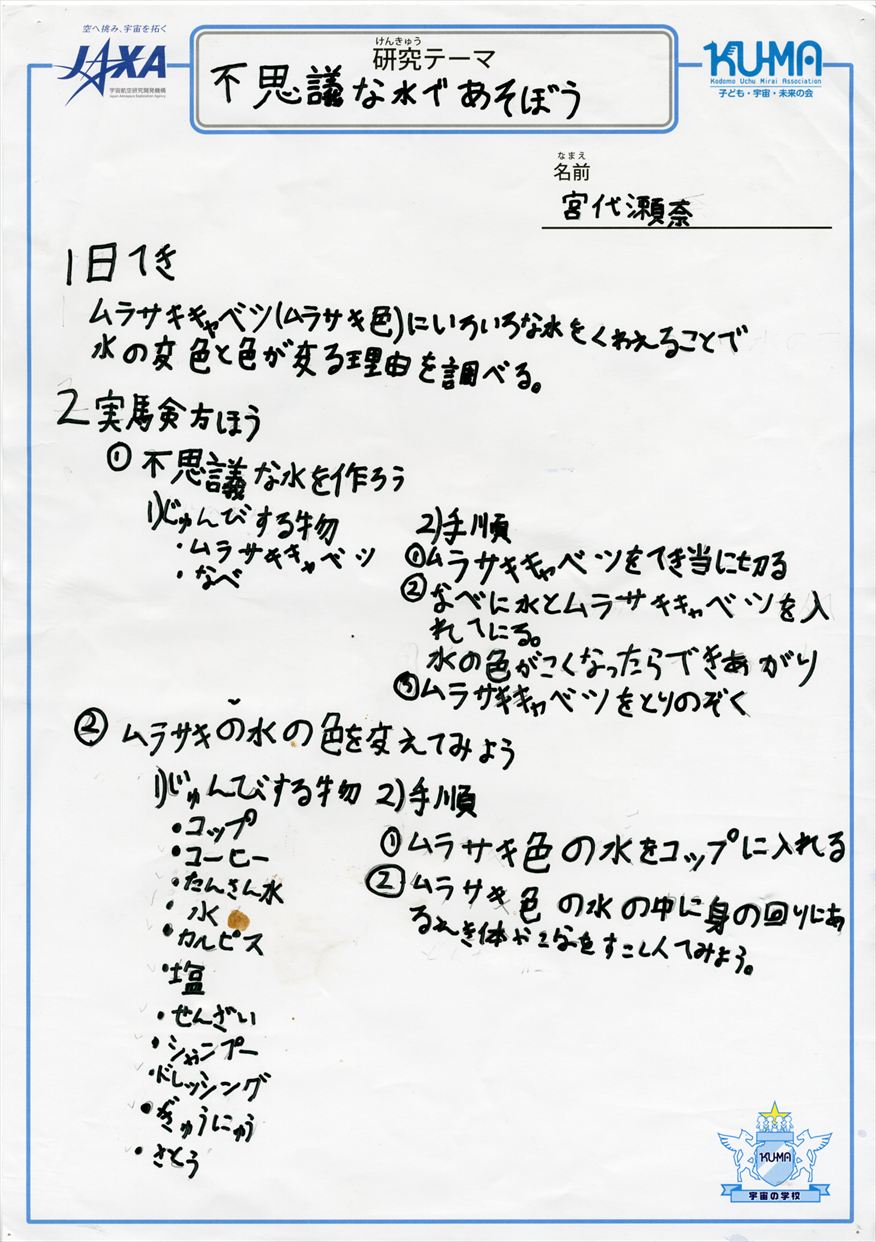 空へ挑み、宇宙を拓く
JAXA
宇宙航空研究開発機構
Japan Aerospace Exploration Agency
けんきゅう
研究テーマ
不思議な水であそぼう
KU-MA
Kodomo Uchu Mirai Association
子ども・宇宙・未来の会
なまえ
名前
宮代瀬奈
1 日てき
ムラサキキャベツ(ムラサキ色)にいろいろな水をくわえることで
水の変色と色が変る理由を調べる。
2 実験方ほう
① 不思議な水を作ろう
1)じゅんびする物
・ムラサキキャベツ
・なべ
2)手順
①ムラサキキャベツをてき当に切る
②なべに水とムラサキキャベツを入
れてにる。
水の色がこくなったらできあがり
③ムラサキキャベツをとりのぞく
② ムラサキの水の色を変えてみよう
1)じゅんびする物
・コップ
・コーヒー
・たんさん水
・水
・カルピス
・塩
・せんざい
・シャンプー
・ドレッシング
・ぎゅうにゅう
・さとう
2)手順
①ムラサキ色の水をコップに入れる
②ムラサキ色の水の中に身の回りにあ
るえき体や をすこし入てみよう。
KU-MA
宇宙の学校